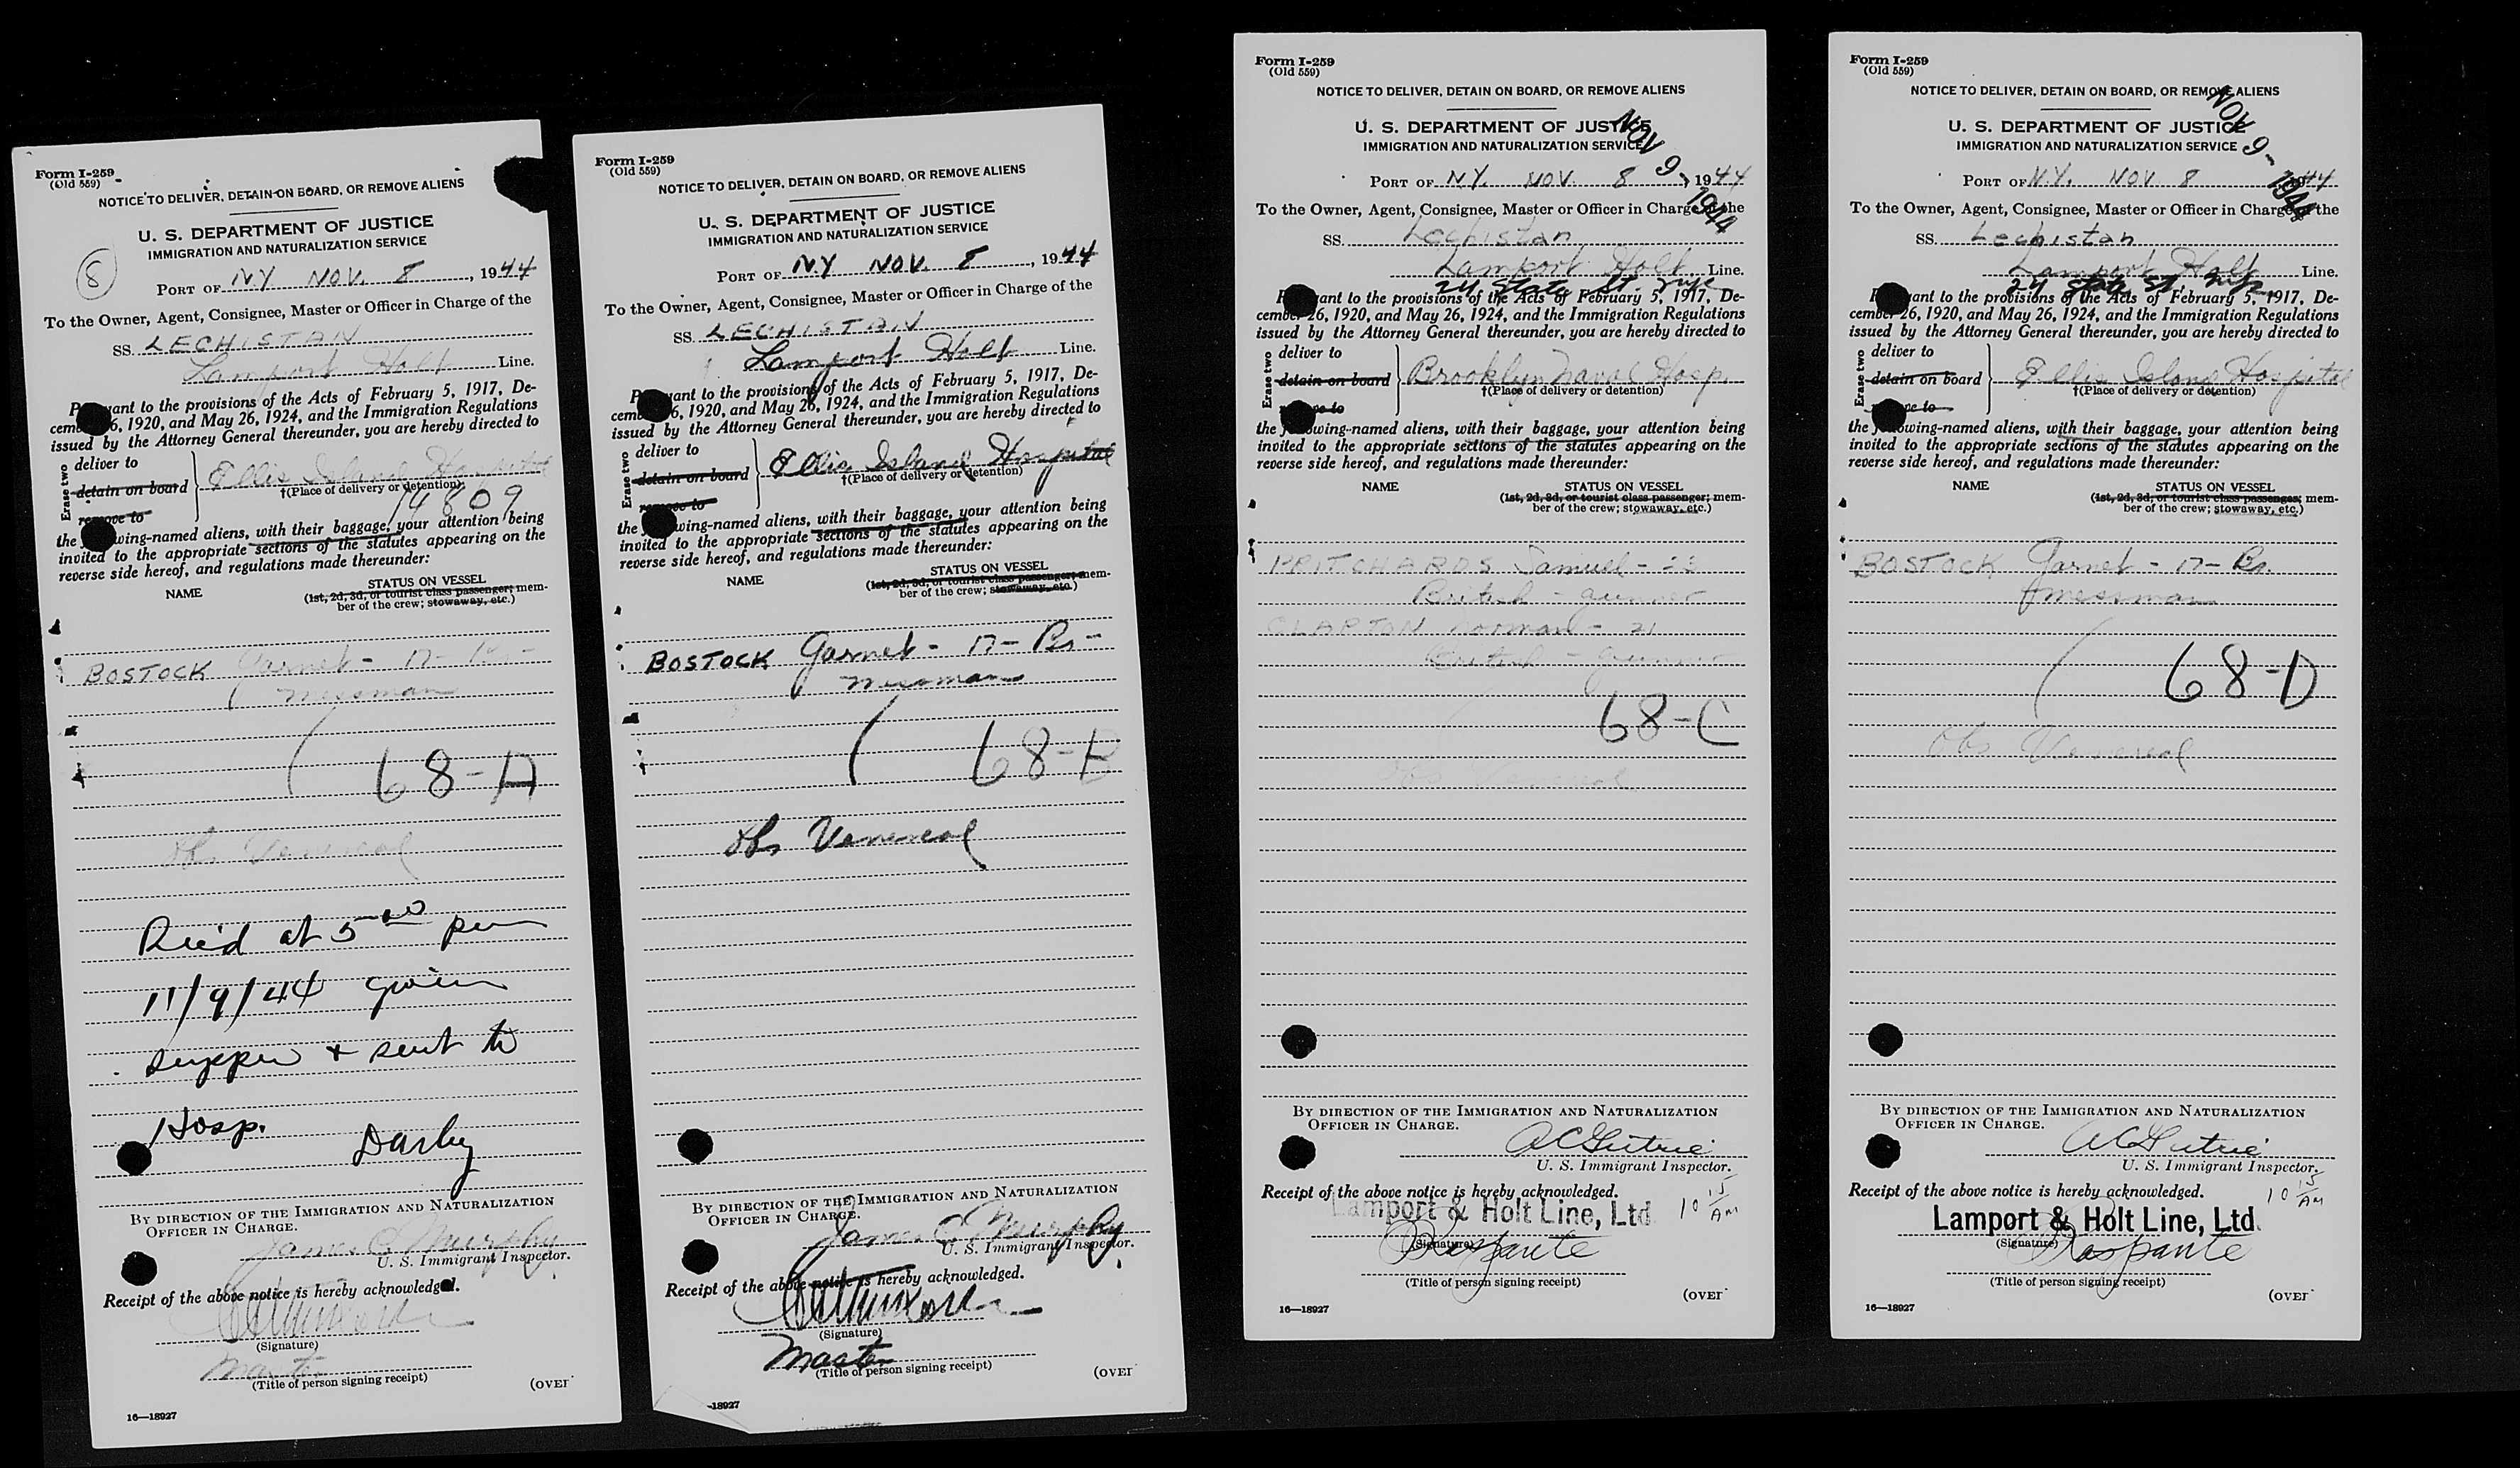 Form I-259
(Old 559)
NOTICE TO DELIVER, DETAIN ON BOARD, OR REMOVE ALIENS
U. S. DEPARTMENT OF JUSTICE
IMMIGRATION AND NATURALIZATION SERVICE
8
PORT OF N.Y. NOV. 8, 1944
To the Owner, Agent, Consignee, Master or Officer in Charge of the
SS. LECHISTAN
Lamport Holt Line.
ant to the provisions of the Acts of February 5, 1917, De-
cem 6, 1920, and May 26, 1924, and the Immigration Regulations
issued by the Attorney General thereunder, you are hereby directed to
Erase two
deliver to
detain on board
remove to
Ellis Island Hospital
†(Place of delivery or detention)
14809
the wing-named aliens, with their baggage, your attention being
invited to the appropriate sections of the statutes appearing on the
reverse side hereof, and regulations made thereunder:
NAME
STATUS ON VESSEL
(1st, 2d, 3d, or tourist class passenger; mem-
ber of the crew; stowaway, etc.)
BOSTOCK Garnet - 17 -
messman
68-A
Obs Venereal
Rec'd at 5 00 pm
11/9/44 given
supper + sent to
Hosp.
Darby
BY DIRECTION OF THE IMMIGRATION AND NATURALIZATION
OFFICER IN CHARGE.
James C Murphy
U. S. Immigrant Inspector.
Receipt of the above notice is hereby acknowledged.
(Signature)
Master
(Title of person signing receipt)
(OVER
16—18927
Form I-259
(Old 559)
NOTICE TO DELIVER, DETAIN ON BOARD, OR REMOVE ALIENS
U. S. DEPARTMENT OF JUSTICE
IMMIGRATION AND NATURALIZATION SERVICE
PORT OF N.Y NOV. 8, 1944
To the Owner, Agent, Consignee, Master or Officer in Charge of the
SS. LECHISTAN
Lamport Holt Line.
P ant to the provisions of the Acts of February 5, 1917, De-
cem 6, 1920, and May 26, 1924, and the Immigration Regulations
issued by the Attorney General thereunder, you are hereby directed to
Erase two
deliver to
detain on board
remove to
Ellis Island Hospital
†(Place of delivery or detention)
the wing-named aliens, with their baggage, your attention being
invited to the appropriate sections of the statutes appearing on the
reverse side hereof, and regulations made thereunder:
NAME
STATUS ON VESSEL
(1st, 2d, 3d, or tourist class passenger; mem-
ber of the crew; stowaway, etc.)
BOSTOCK Garnet - 17 - Br -
messman
68-B
Obs Venereal
BY DIRECTION OF THE IMMIGRATION AND NATURALIZATION
OFFICER IN CHARGE.
James C Murphy
U. S. Immigrant Inspector.
Receipt of the above notice is hereby acknowledged.
(Signature)
Master
(Title of person signing receipt)
(OVER
-18927
Form I-259
(Old 559)
NOTICE TO DELIVER, DETAIN ON BOARD, OR REMOVE ALIENS
U. S. DEPARTMENT OF JUSTICE
IMMIGRATION AND NATURALIZATION SERVICE
NOV 9 - 1944
PORT OF N.Y. NOV. 8, 1944
To the Owner, Agent, Consignee, Master or Officer in Charge of the
SS. Lechistan
Lamport Holt Line.
24 State St. nyc
P ant to the provisions of the Acts of February 5, 1917, De-
cember 26, 1920, and May 26, 1924, and the Immigration Regulations
issued by the Attorney General thereunder, you are hereby directed to
Erase two
deliver to
detain on board
ve to
Brooklyn Naval Hosp.
†(Place of delivery or detention)
the f wing-named aliens, with their baggage, your attention being
invited to the appropriate sections of the statutes appearing on the
reverse side hereof, and regulations made thereunder:
NAME
STATUS ON VESSEL
(1st, 2d, 3d, or tourist class passenger; mem-
ber of the crew; stowaway, etc.)
PRITCHARDS Samuel -
British - gunner
CLAPTON Norman - 21
British - gunner
68-C
Obs Venereal
BY DIRECTION OF THE IMMIGRATION AND NATURALIZATION
OFFICER IN CHARGE.
U. S. Immigrant Inspector.
Receipt of the above notice is hereby acknowledged.
Lamport & Holt Line, Ltd.
10 15 AM
(Signature)
(Title of person signing receipt)
(OVER
16—18927
Form I-259
(Old 559)
NOTICE TO DELIVER, DETAIN ON BOARD, OR REMOVE ALIENS
U. S. DEPARTMENT OF JUSTICE
IMMIGRATION AND NATURALIZATION SERVICE
NOV 9 - 1944
PORT OF N.Y. NOV 8 1944
To the Owner, Agent, Consignee, Master or Officer in Charge of the
SS. Lechistan
Lamport Holt Line.
24 State St. nyc
P ant to the provisions of the Acts of February 5, 1917, De-
cember 26, 1920, and May 26, 1924, and the Immigration Regulations
issued by the Attorney General thereunder, you are hereby directed to
Erase two
deliver to
detain on board
ve to
Ellis Island Hospital
†(Place of delivery or detention)
the f wing-named aliens, with their baggage, your attention being
invited to the appropriate sections of the statutes appearing on the
reverse side hereof, and regulations made thereunder:
NAME
STATUS ON VESSEL
(1st, 2d, 3d, or tourist class passenger; mem-
ber of the crew; stowaway, etc.)
BOSTOCK Garnet - 17 - Br.
messman
68-D
Obs Venereal
BY DIRECTION OF THE IMMIGRATION AND NATURALIZATION
OFFICER IN CHARGE.
U. S. Immigrant Inspector.
Receipt of the above notice is hereby acknowledged.
10 15 AM
Lamport & Holt Line, Ltd.
(Signature)
(Title of person signing receipt)
(OVER
16—18927